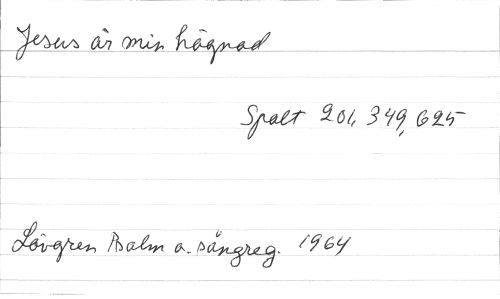 Jesus är min hägnad
Spalt 201, 349, 625
Lövgren Psalm o. sångreg. 1964